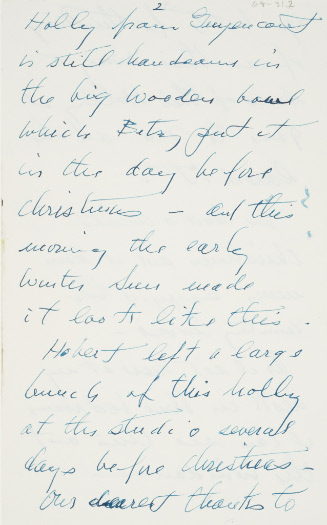 2
Holly from Guyencourt
is still handsome in
the big wooden bowl
which Betsy put it
in the day before
christmas – and this
morning the early
winter sun made
it look like this.
Hobert left a large
bunch of this holly
at the studio several
days before christmas –
Our dearest thanks to